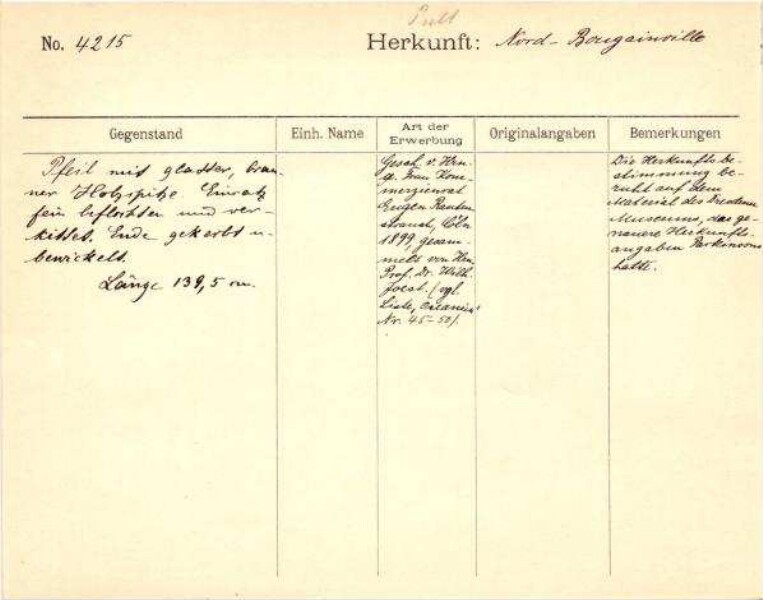 Pult
No. 4215 Herkunft: Nord-Bougainville
Gegenstand
Einh. Name
Art der
Erwerbung
Originalangaben
Bemerkungen
Pfeil mit glatter, brau-
ner Holzspitze. Einsatz
fein beflochten und ver-
kittet. Ende gekerbt u.
bewickelt.
Länge 139,5 cm.
Gesch. v. Hrn.
u. Frau Kom-
merzienrat
Eugen Rauten-
strauch, Cöln
1899, gesam-
melt von Hrn.
Prof. Dr. Wilh.
Joest. (vgl.
Liste, Oceanien
Nr. 45-50).
Die Herkunftsbe-
stimmung be-
ruht auf dem
Material des Dresdener
Museums, das ge-
nauere Herkunfts-
angaben Parkinsons
hatte.